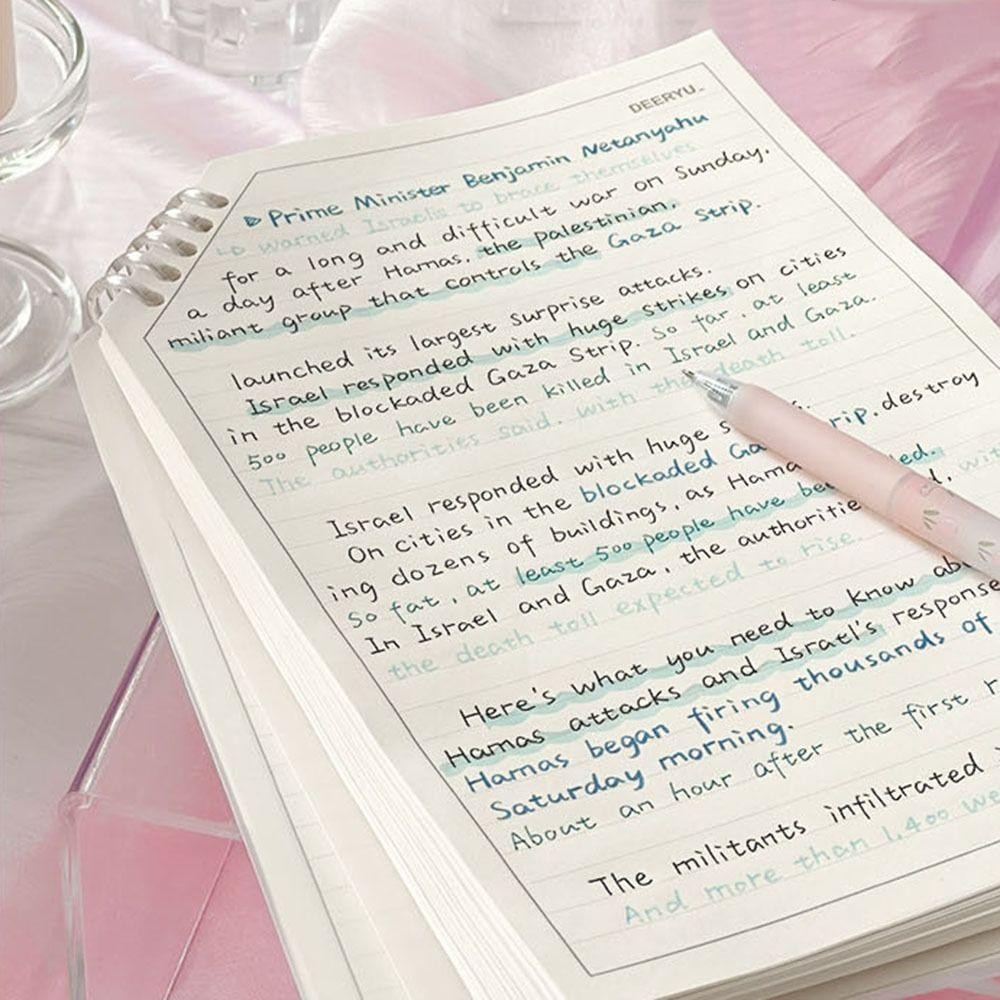 DEERYU
Prime Minister Benjamin Netanyahu
warned Israelis to brace themselves
for a long and difficult war on Sunday.
a day after Hamas. the palestinian.
miliant group that controls the Gaza Strip.
launched its largest surprise attacks.
Israel responded with huge strikes on cities
in the blockaded Gaza Strip. So far, at least
500 people have been killed in Israel and Gaza.
The authorities said. with the death toll.
Israel responded with huge s
On cities in the blockaded Ga rip. destroy
ing dozens of buildings, as Hama
So fat, at least 500 people have bee led.
In Israel and Gaza, the authoritie d, wit
the death toll expected to rise.
Here's what you need to know ab
Hamas attacks and Isratl's response
Hamas began firing thousands of
Saturday morning.
About an hour after the first r
The militants infiltrated
And more than 1,400 we